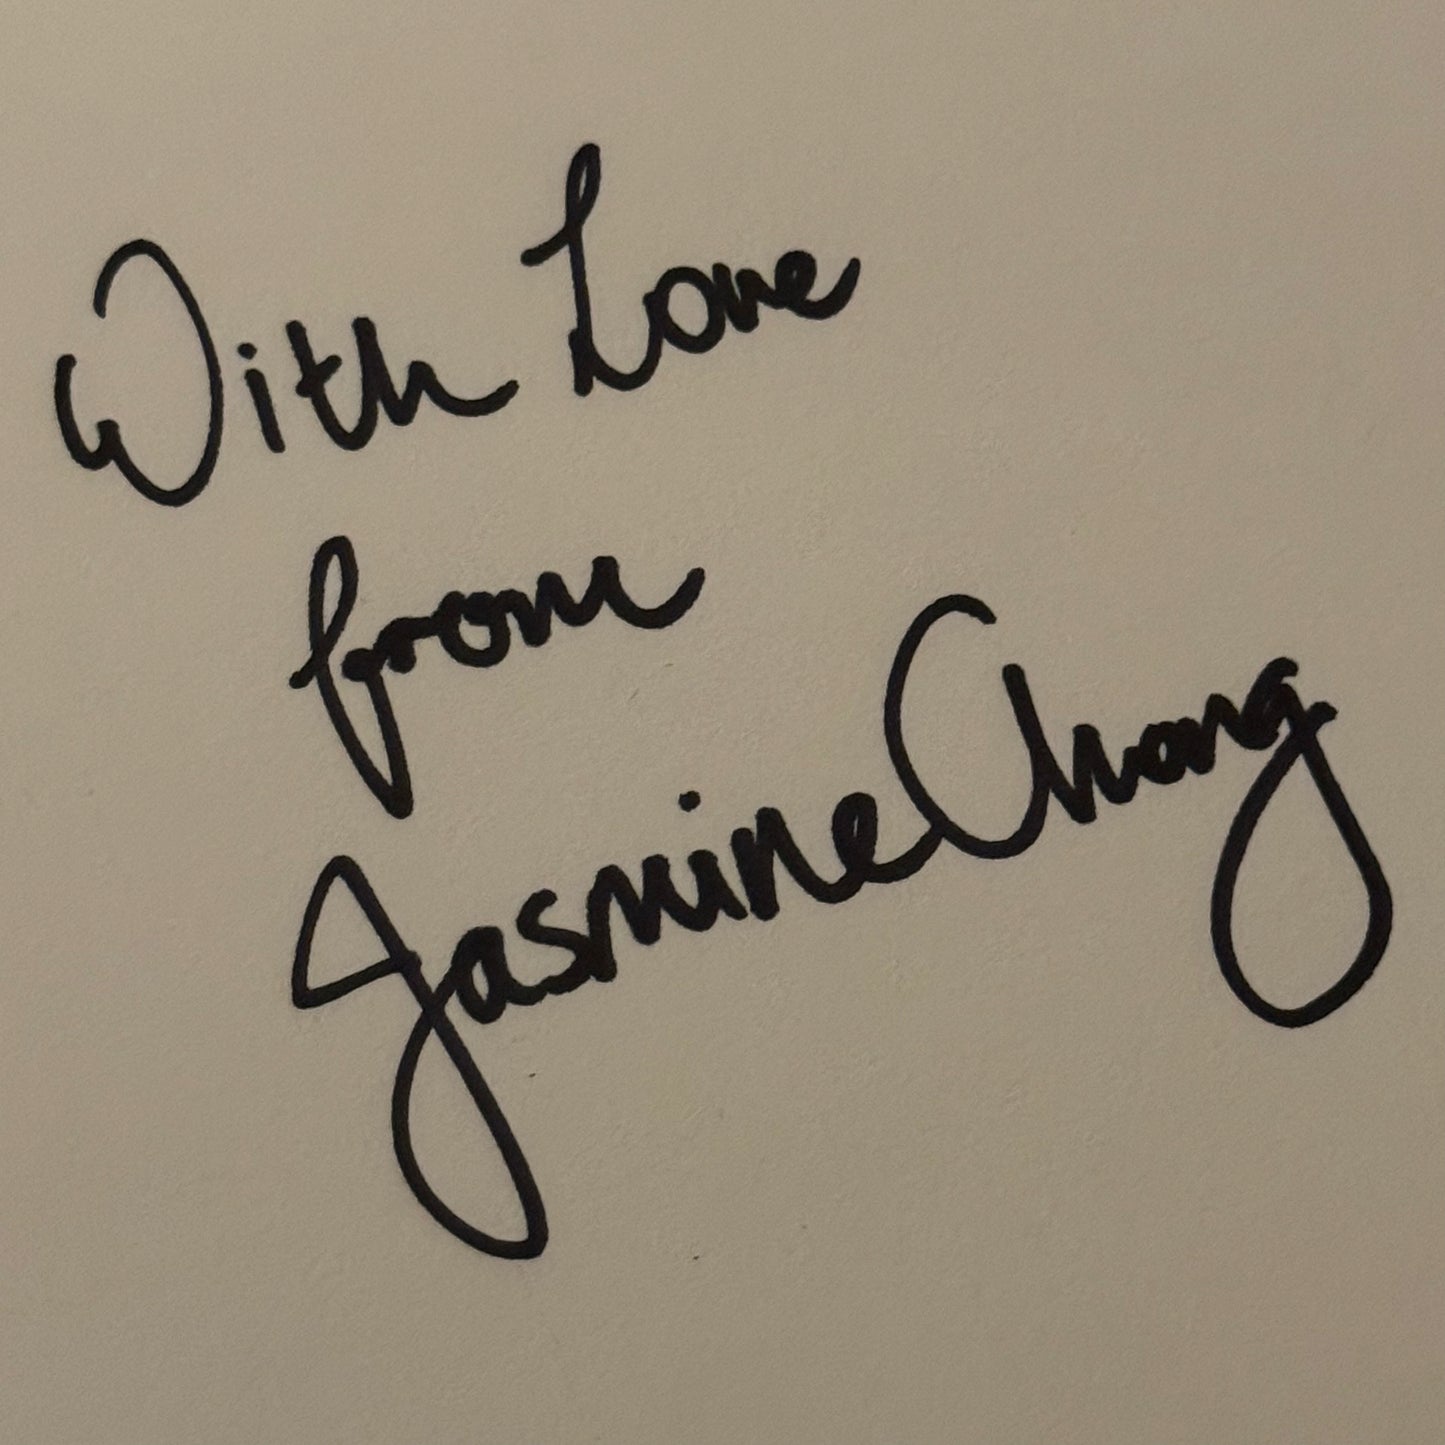 With Love
from
Jasmine Chang